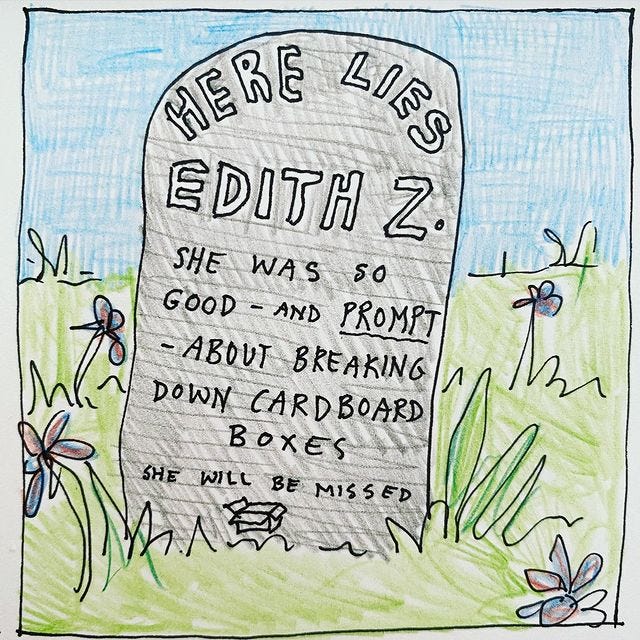 HERE LIES
EDITH Z.
SHE WAS SO
GOOD - AND PROMPT
- ABOUT BREAKING
DOWN CARDBOARD
BOXES
SHE WILL BE MISSED